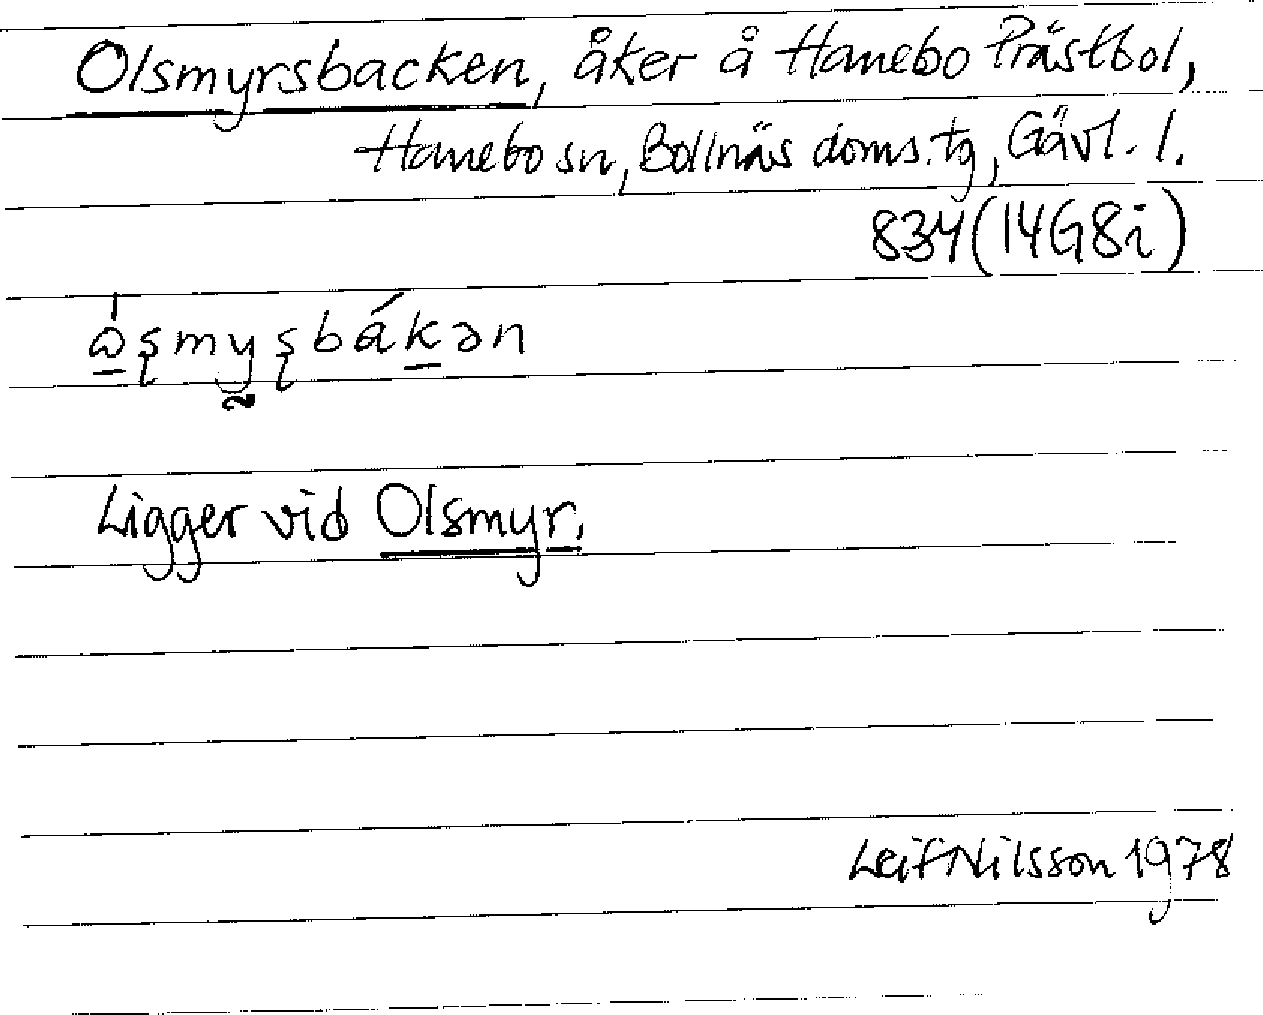 Olsmyrsbacken, åker å Hanebo Prästbol,
Hanebo sn, Bollnäs doms.tg, Gävl. l.
834 (14G8i)
ɷ̀ʂmyʂbákən
Ligger vid Olsmyr.
Leif Nilsson 1978